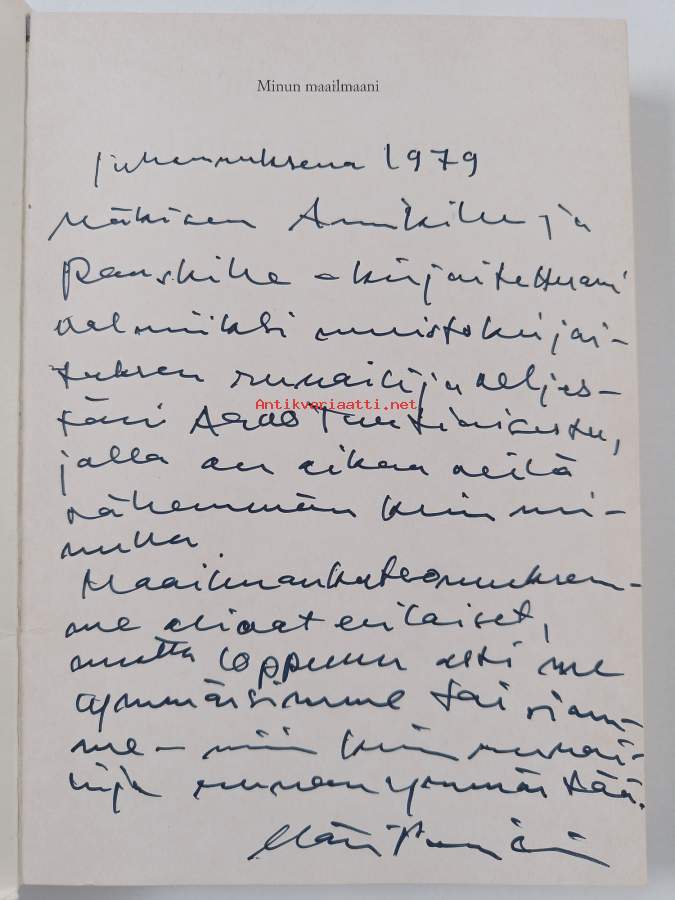 Minun maailmaani
juhannuksena 1979
Mäkisen Annikille ja
kirjoitettuani
valmiiksi muistokirjoi-
tuksen runoilijaveljes-
täni Arvo Turtiaisesta,
Antikvariaatti.net
jolla on aikaa vielä
vähemmän kuin mi-
nulla.
Maailmankatsomuksem-
me olivat erilaiset,
mutta loppuun asti me
ymmärsimme toisiam-
me – niin kuin runoi-
lija ymmärtää.